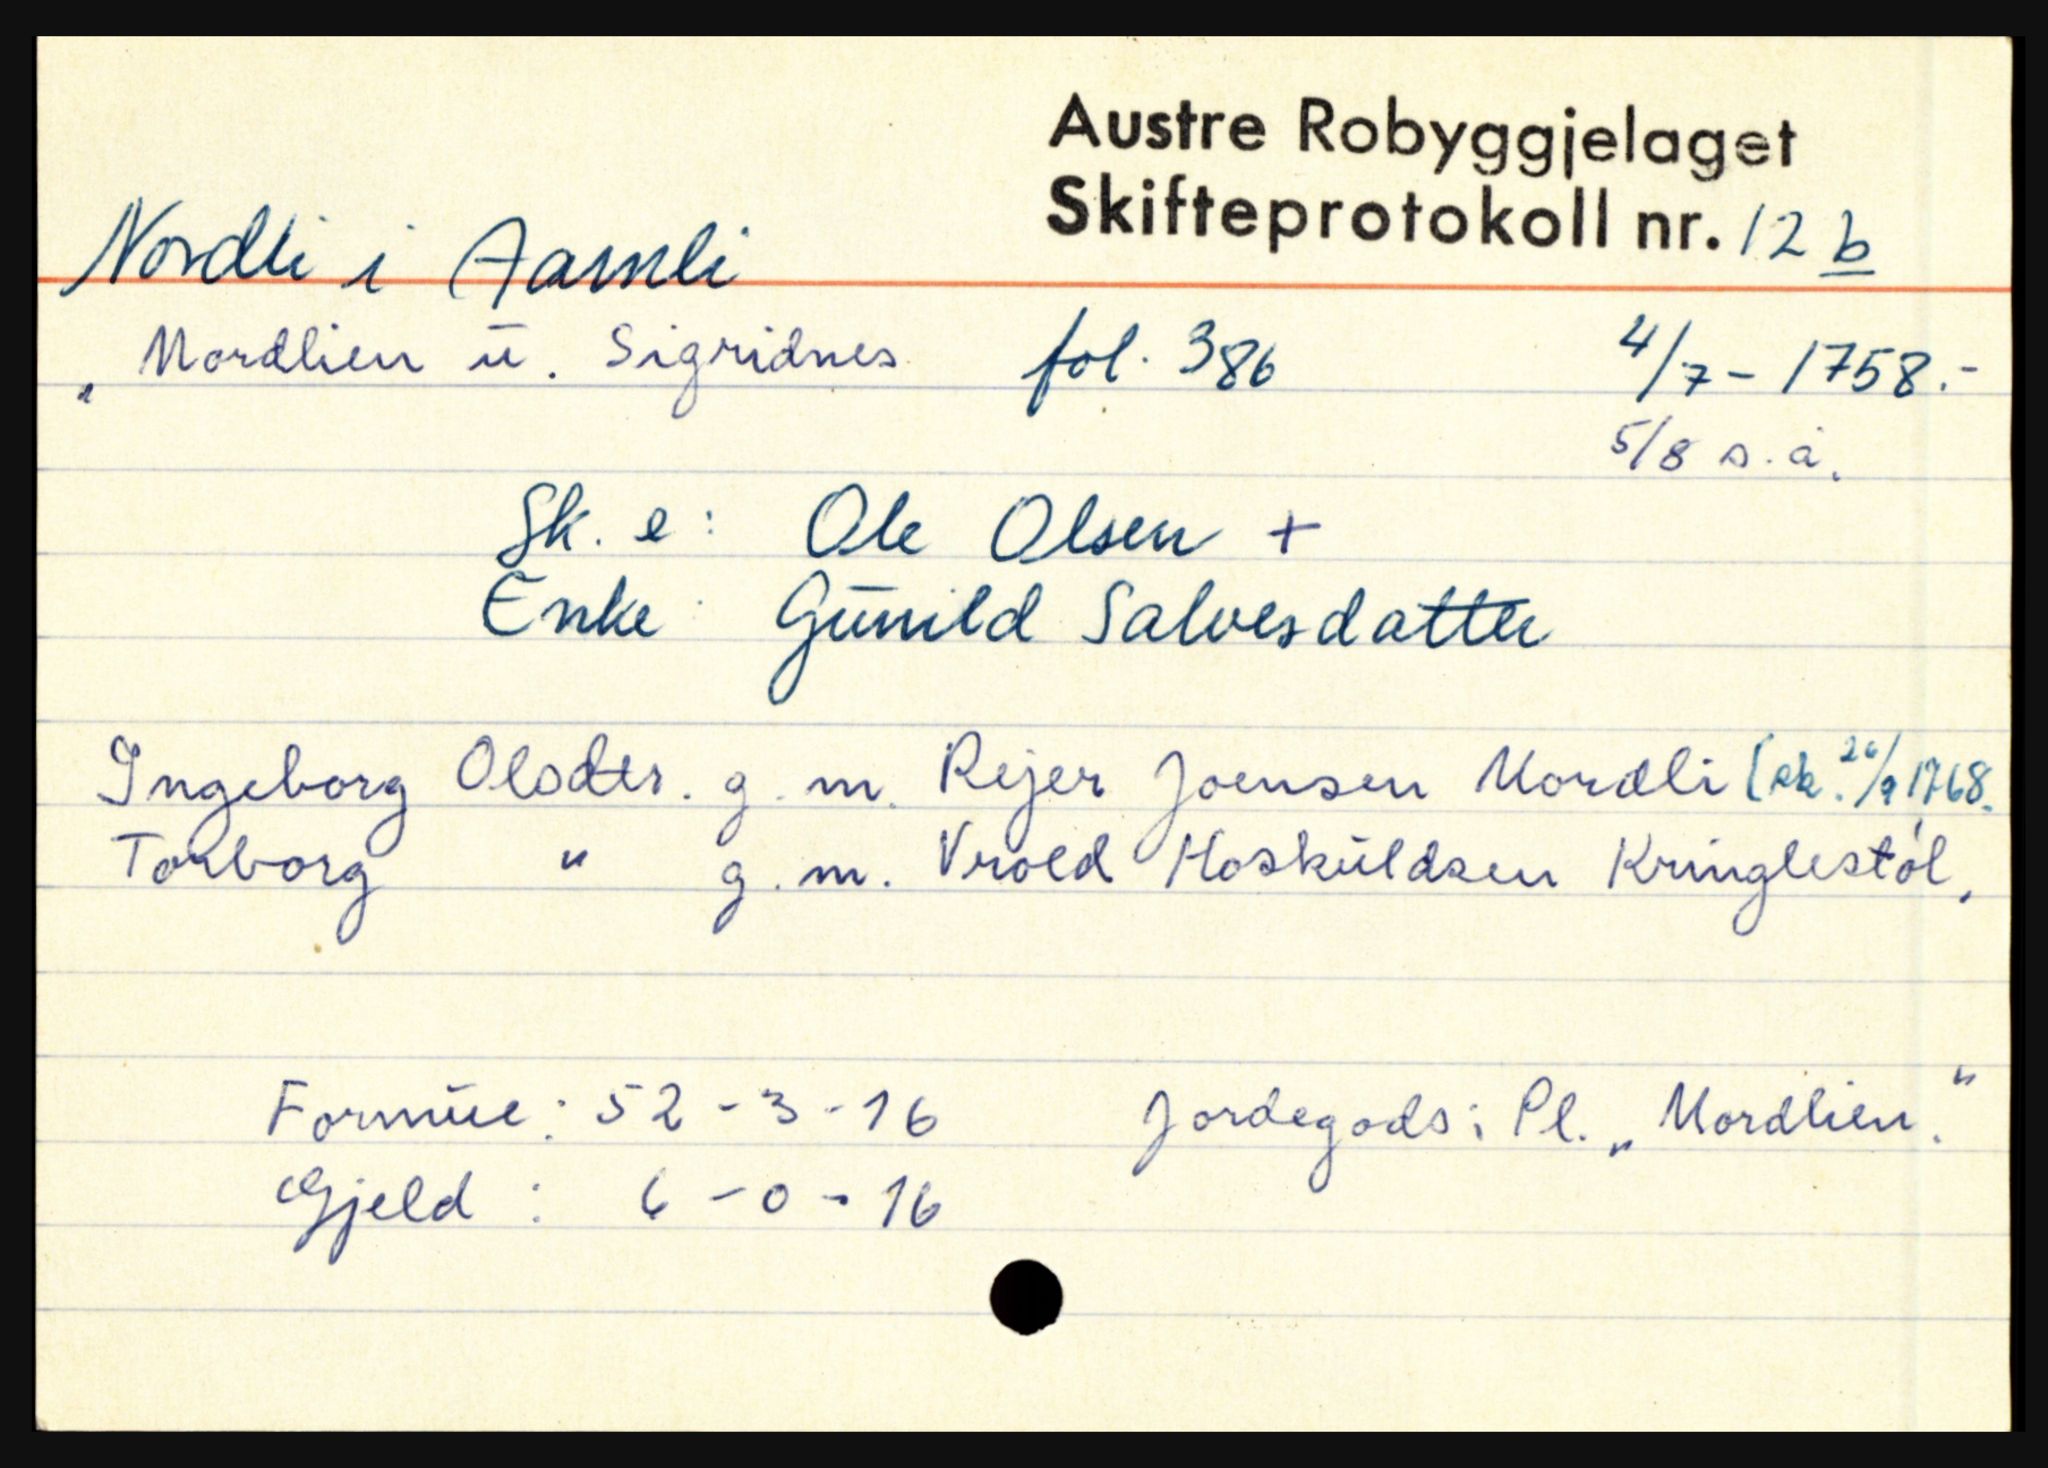 Austre Robyggjelaget
Skifteprotokoll nr. 12 b
Nordli i Aamli
„Nordlien u. Sigridnes fol. 386 4/7 - 1758.-
5/8 s. å.
Sk. e: Ole Olsen +
Enke: Gunild Salvesdatter
Ingeborg Olsdtr. g. m. Rejer Joensen Nordli [sk. 26/9 1768.
Torborg " g. m. Vrold Hoskuldsen Kringlestöl.
Formue: 52 - 3 - 16 Jordegods: Pl. „Nordlien."
Gjeld : 6 - 0 - 16